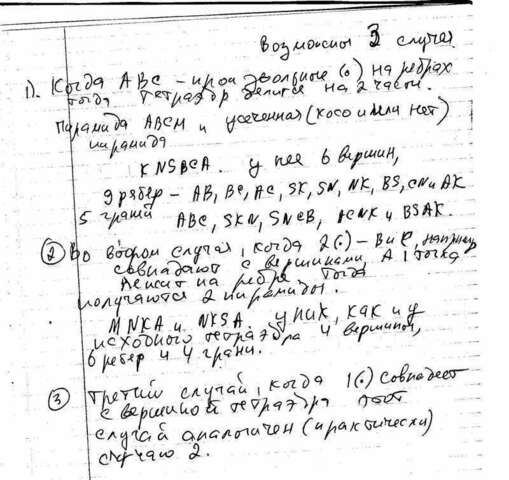 Возможны 3 случая
1). Когда ABC - произвольные (.) на ребрах
тогда тетраэдр делится на 2 части.
Пирамида ABCM и усеченная (косо или нет)
пирамида
KNSBCA. у нее 6 вершин,
9 рёбер - AB, BC, AC, SK, SN, NK, BS, CN и AK
5 граней ABC, SKN, SNCB, ACNK и BSAK.
2 Во втором случая, когда 2(.) - B и C, например
совпадают с вершинами, A, точка
лежит на ребре тогда
получаются 2 пирамиды.
MNKA и NKSA. у них, как и у
исходного тетраэдра 4 вершины,
6 ребер и 4 грани.
3 Третий случай, когда 1(.) совпадает
с вершиной тетраэдра этот
случай аналогичен (практически)
случаю 2.